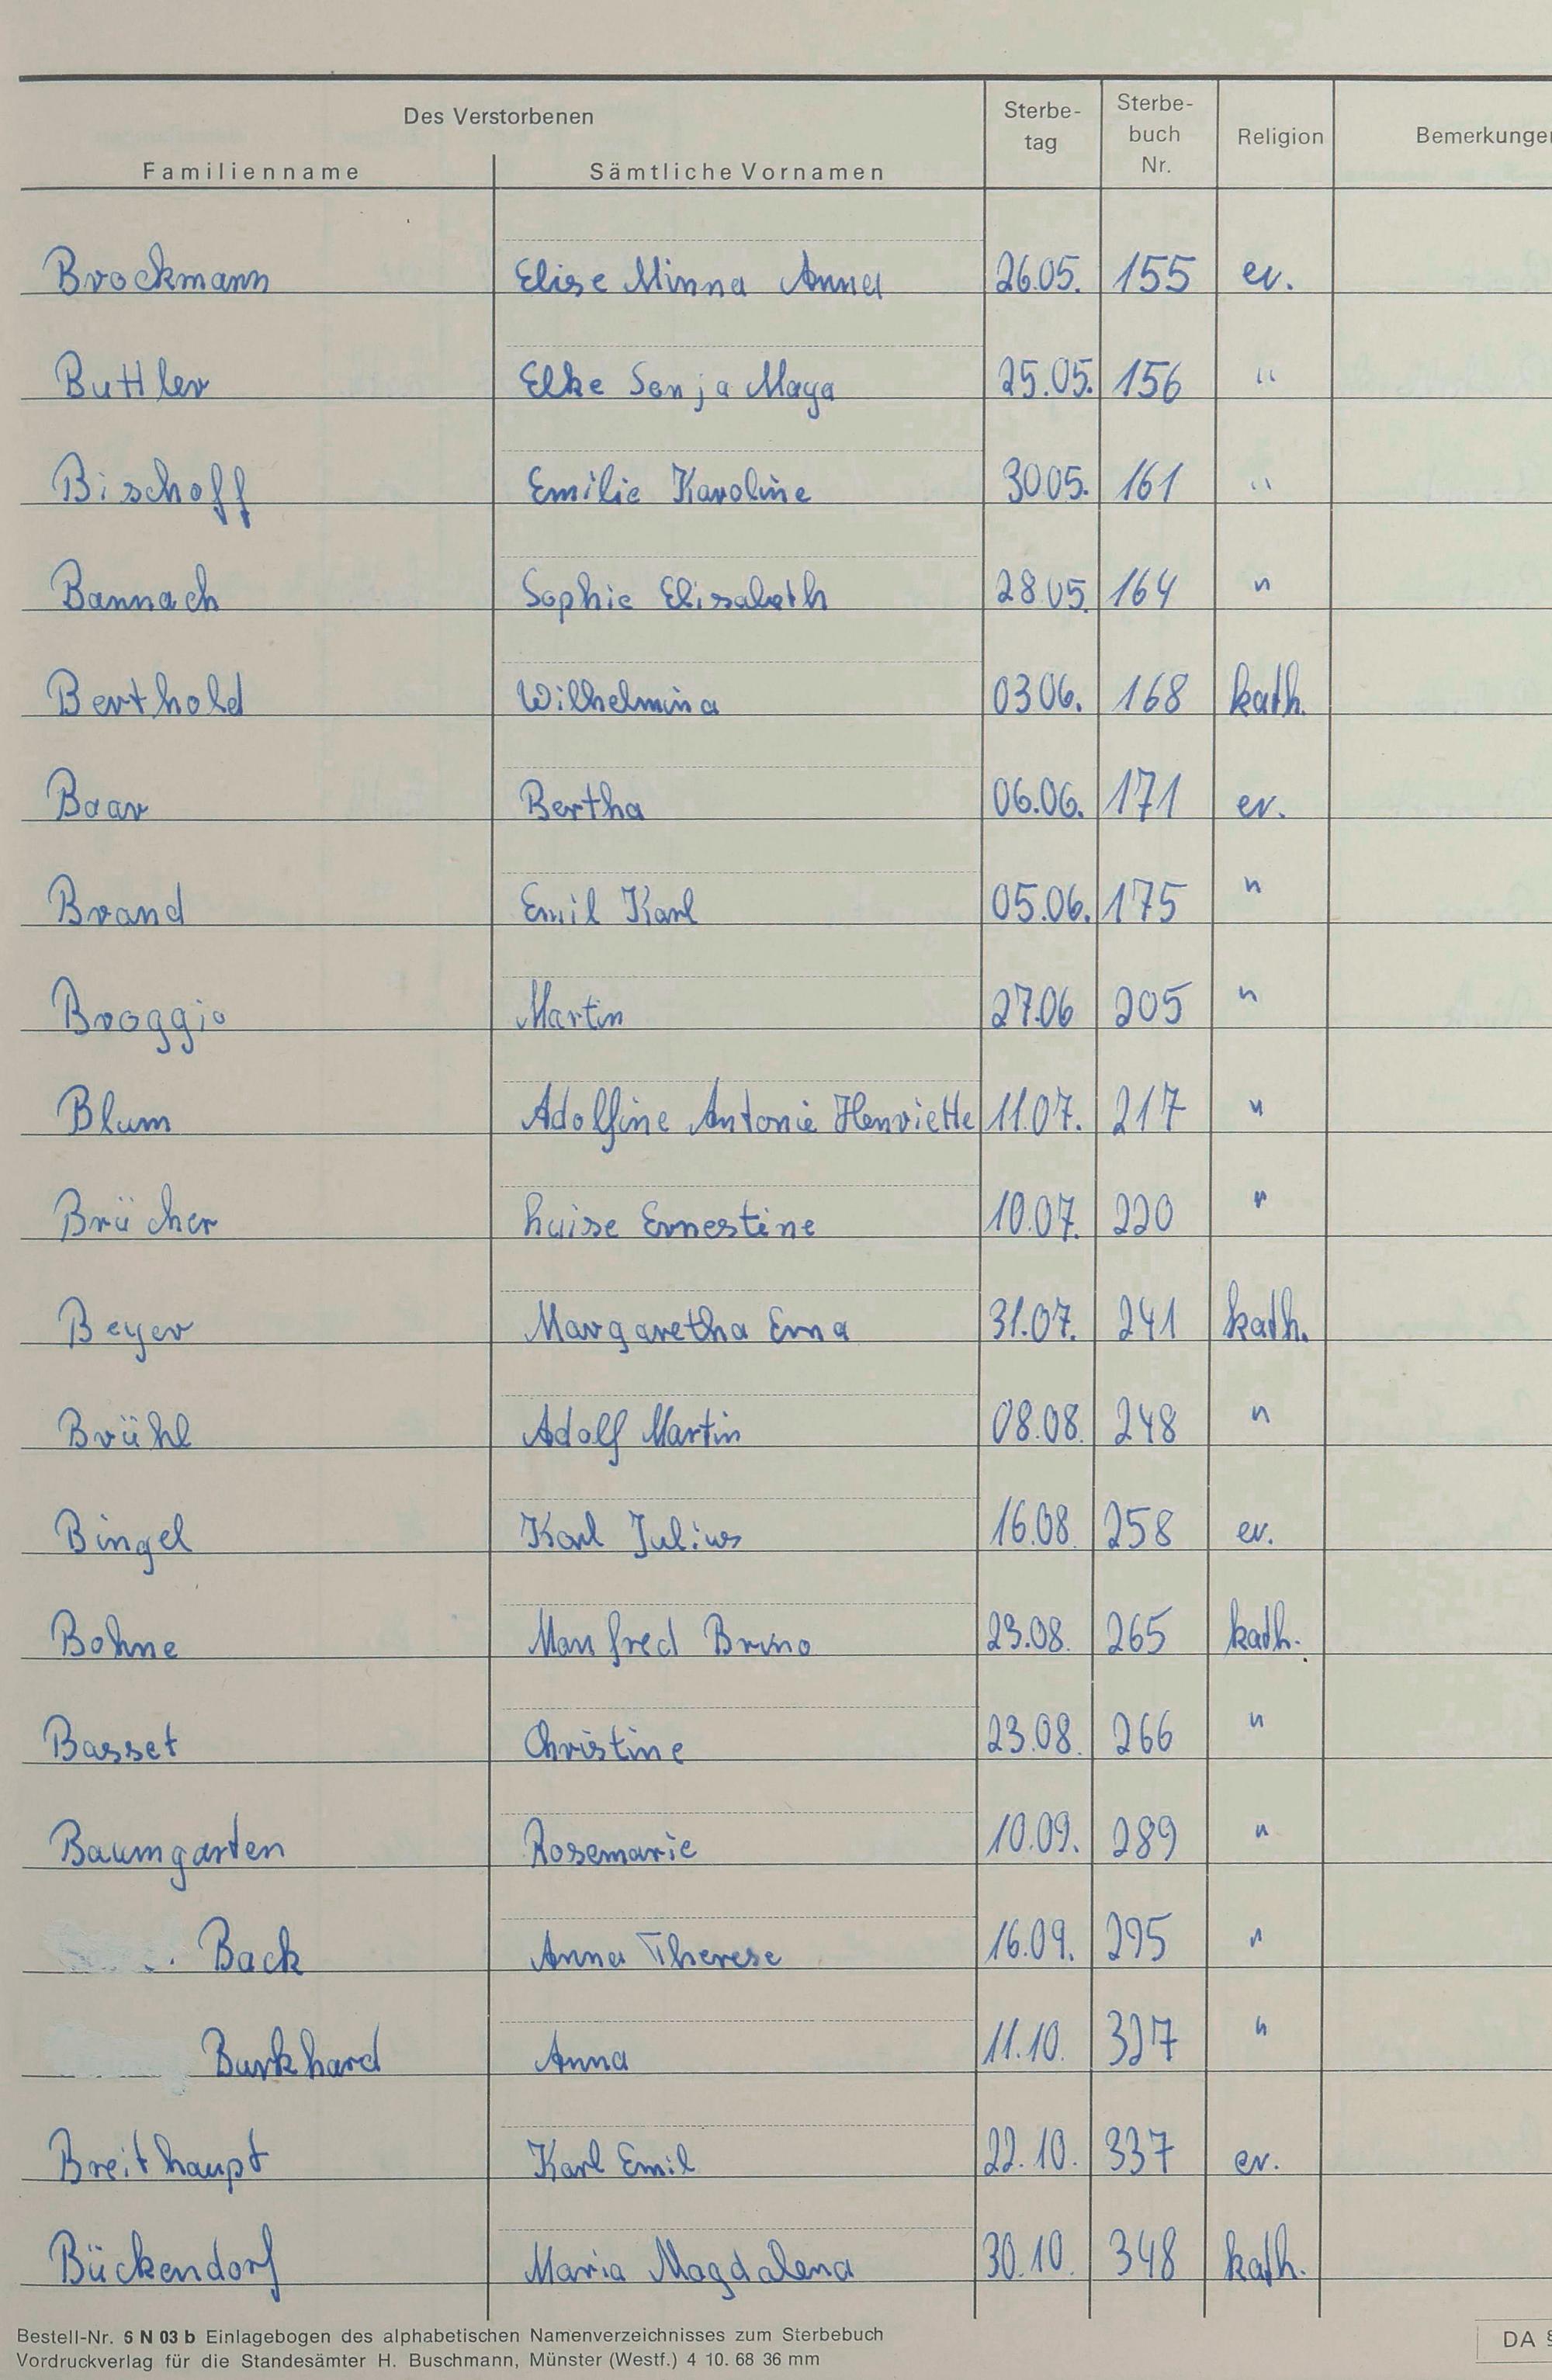 Des Verstorbenen
Familienname Sämtliche Vornamen Sterbe-tag Sterbe-buch Nr. Religion Bemerkunge
Brockmann Elise Minna Anna 26.05. 155 ev.
Buttler Elke Sonja Maya 25.05. 156 "
Bischoff Emilie Karoline 30.05. 161 "
Bannach Sophie Elisabeth 28.05. 164 "
Berthold Wilhelmina 03.06. 168 kath.
Baar Bertha 06.06. 171 ev.
Brand Emil Karl 05.06. 175 "
Broggio Martin 27.06 205 "
Blum Adolfine Antonie Henriette 11.07. 217 "
Brücher Luise Ernestine 10.07. 220 "
Beyer Margaretha Erna 31.07. 241 kath.
Brühl Adolf Martin 08.08. 248 "
Bingel Karl Julius 16.08. 258 ev.
Bohne Manfred Bruno 23.08. 265 kath.
Basset Christine 23.08. 266 "
Baumgarten Rosemarie 10.09. 289 "
Back Anna Therese 16.09. 295 "
Burkhard Anna 11.10. 327 "
Breithaupt Karl Emil 22.10. 337 ev.
Bückendorf Maria Magdalena 30.10. 348 kath.
Bestell-Nr. 5 N 03 b Einlagebogen des alphabetischen Namenverzeichnisses zum Sterbebuch
Vordruckverlag für die Standesämter H. Buschmann, Münster (Westf.) 4 10. 68 36 mm
DA